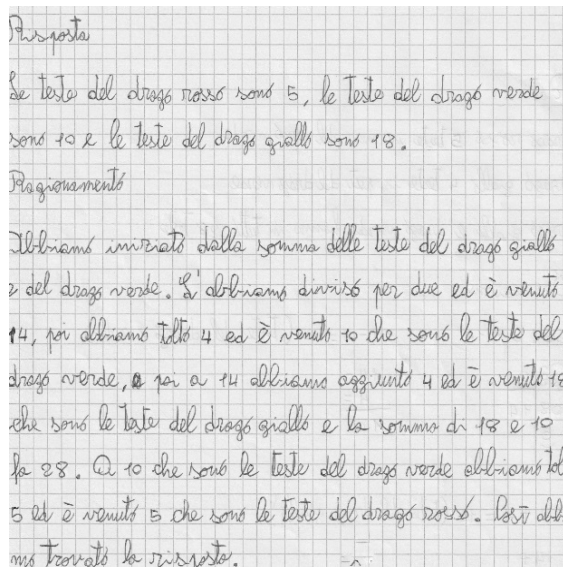 Risposta
Le teste del drago rosso sono 5, le teste del drago verde
sono 10 e le teste del drago giallo sono 18.
Ragionamento
Abbiamo iniziato dalla somma delle teste del drago giallo
e del drago verde. L'abbiamo diviso per due ed è venuto
14, poi abbiamo tolto 4 ed è venuto 10 che sono le teste del
drago verde, e poi a 14 abbiamo aggiunto 4 ed è venuto 18
che sono le teste del drago giallo e la somma di 18 e 10
fa 28. A 10 che sono le teste del drago verde abbiamo tol
5 ed è venuto 5 che sono le teste del drago rosso. Così abb
mo trovato la risposta.